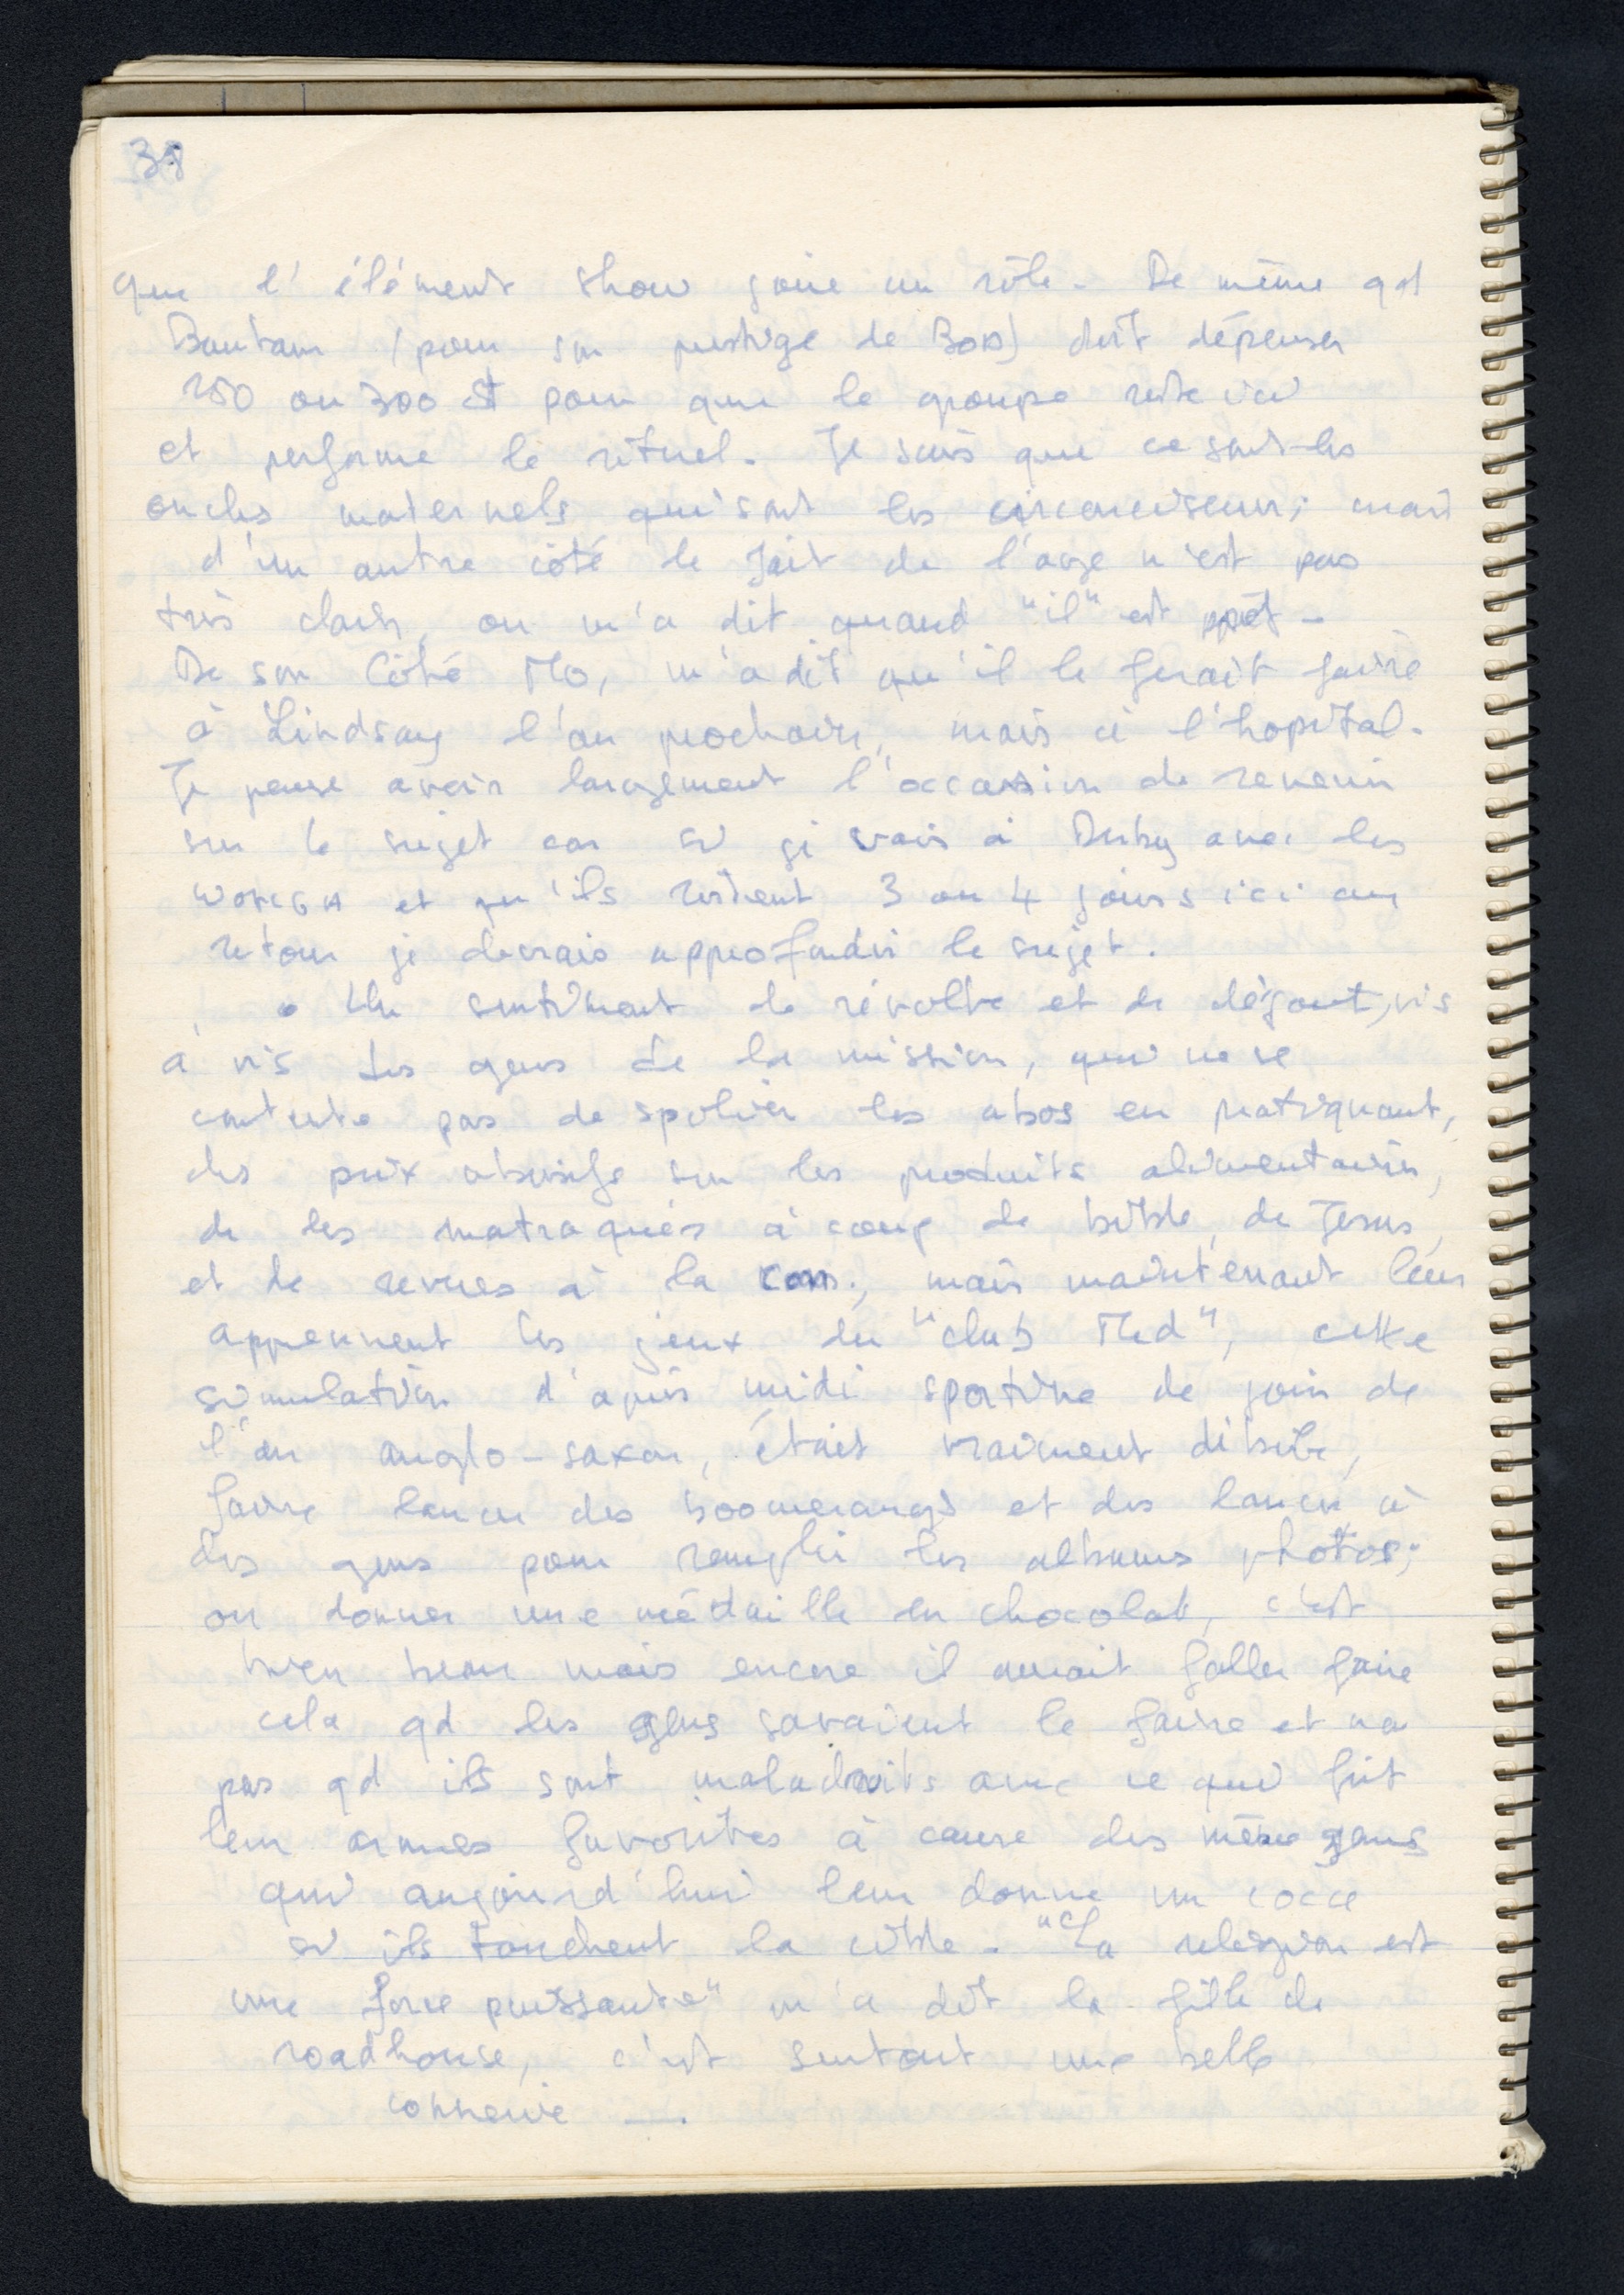 38
que l'élément show joue un rôle. De même qd
Bantam (pour son prestige de Boss) doit dépenser
250 ou 300 $ pour que le groupe reste ici
et performe le rituel. Je sais que ce sont les
oncles maternels qui sont les circonciseurs; mais
d'un autre côté le fait de l'age n'est pas
très clair, on m'a dit quand "il" est prêt -
De son Côté Mo, m'a dit qu'il le ferait faire
à Lindsay l'an prochain, mais à l'hopital.
Je pense avoir largement l'occasion de revenir
sur le sujet car si je vais à Derby avec les
WONGA et qu'ils restent 3 ou 4 jours ici au
retour je devrais approfondir le sujet.
• Un sentiment de révolte et de dégout, vis
à vis des gens de la mission, qui ne se
contente pas de spolier les abos en pratiquant,
des prix abusifs sur les produits alimentaires,
de les matraquer à coup de bible, de Jesus,
et de revues à la con.; mais maintenant leur
apprennent les jeux du "club Med", cette
simulation d'après midi sportive de join de
l'an anglo-saxon, était vraiment débile,
faire lancer des boomerangs et des lances à
des gens pour remplir les albums photos;
ou donner une médaille en chocolat, c'est
bien beau mais encore il aurait fallu faire
cela qd les gens savaient le faire et non
pas qd ils sont maladroits avec ce qui fut
leur armes favorites à cause des même gens
qui aujourd'hui leur donne un coca
si ils touchent la cible. "La religion est
une force puissante" m'a dit la fille de
roadhouse, c'est surtout une belle
connerie —.